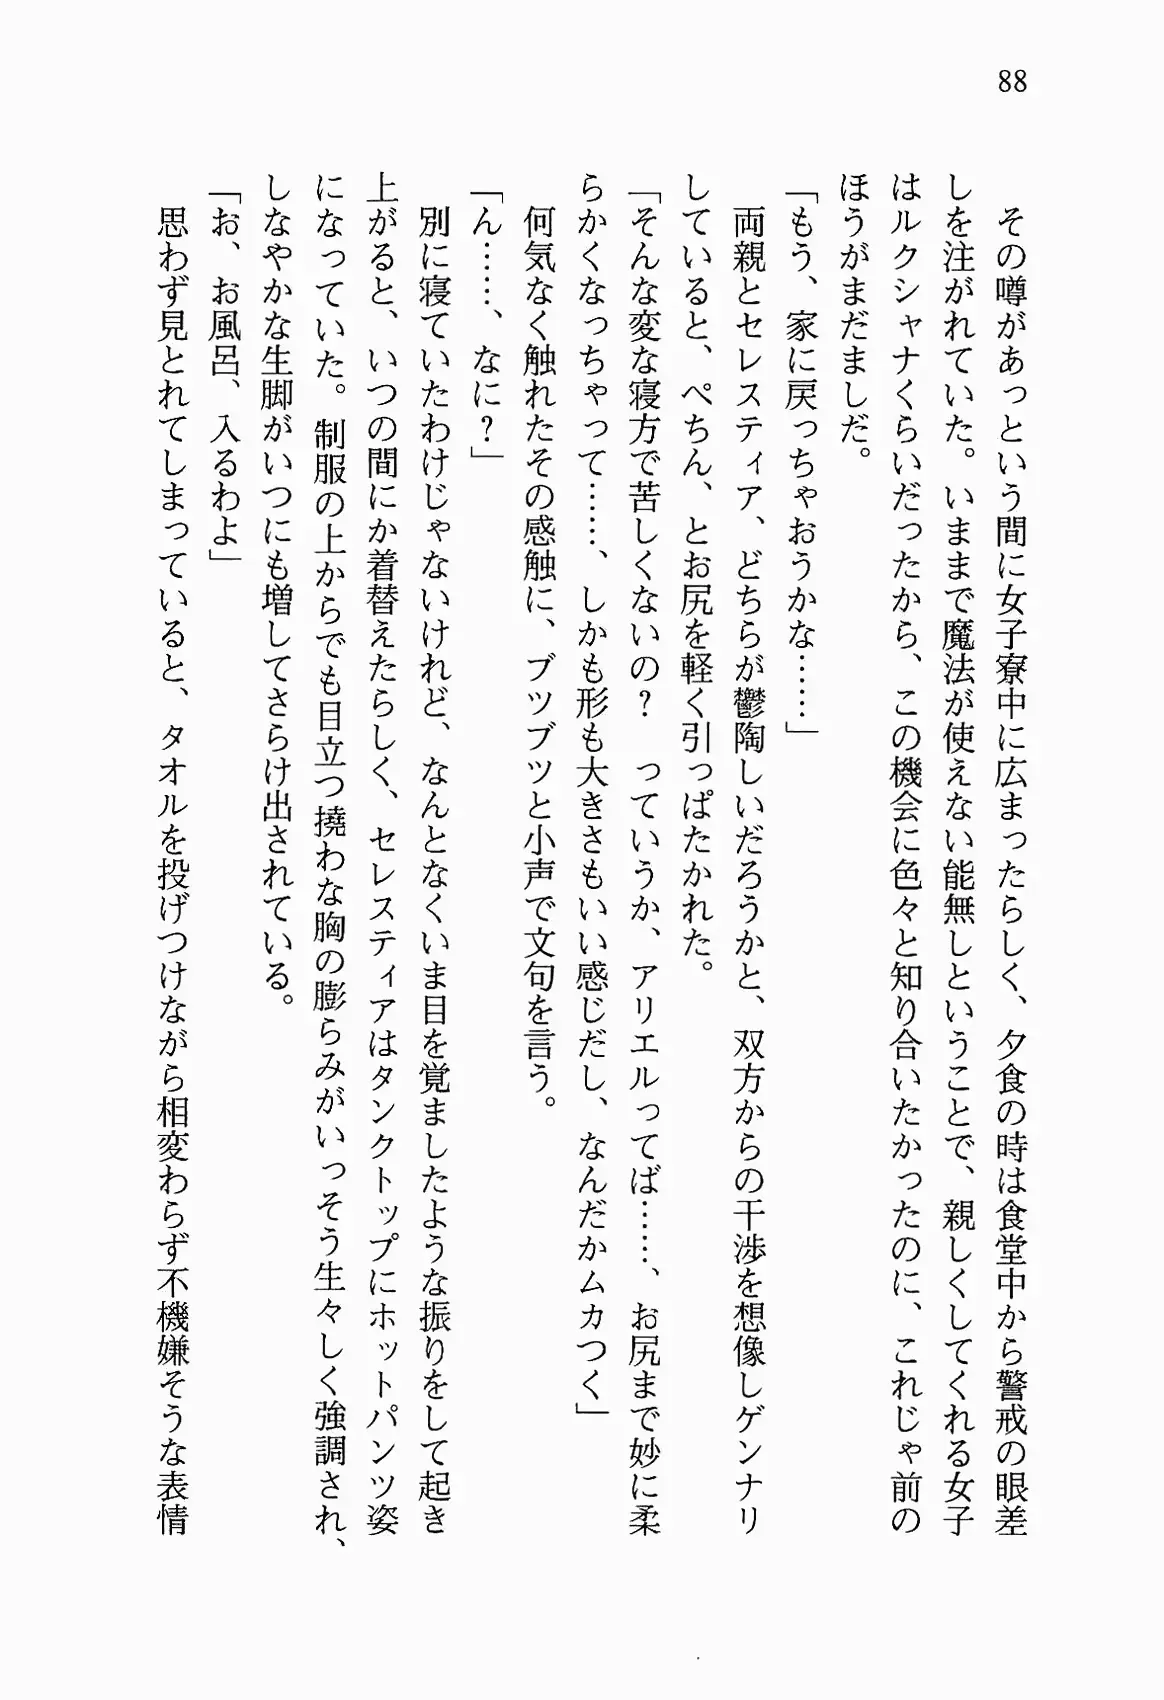 88
　その噂があっという間に女子寮中に広まったらしく、夕食の時は食堂中から警戒の眼差
しを注がれていた。いままで魔法が使えない能無しということで、親しくしてくれる女子
はルクシャナくらいだったから、この機会に色々と知り合いたかったのに、これじゃ前の
ほうがまだましだ。
「もう、家に戻っちゃおうかな……」
　両親とセレスティア、どちらが鬱陶しいだろうかと、双方からの干渉を想像しゲンナリ
していると、ぺちん、とお尻を軽く引っぱたかれた。
「そんな変な寝方で苦しくないの？　っていうか、アリエルってば……、お尻まで妙に柔
らかくなっちゃって……、しかも形も大きさもいい感じだし、なんだかムカつく」
　何気なく触れたその感触に、ブツブツと小声で文句を言う。
「ん……、なに？」
　別に寝ていたわけじゃないけれど、なんとなくいま目を覚ましたような振りをして起き
上がると、いつの間にか着替えたらしく、セレスティアはタンクトップにホットパンツ姿
になっていた。制服の上からでも目立つ撓わな胸の膨らみがいっそう生々しく強調され、
しなやかな生脚がいつにも増してさらけ出されている。
「お、お風呂、入るわよ」
　思わず見とれてしまっていると、タオルを投げつけながら相変わらず不機嫌そうな表情